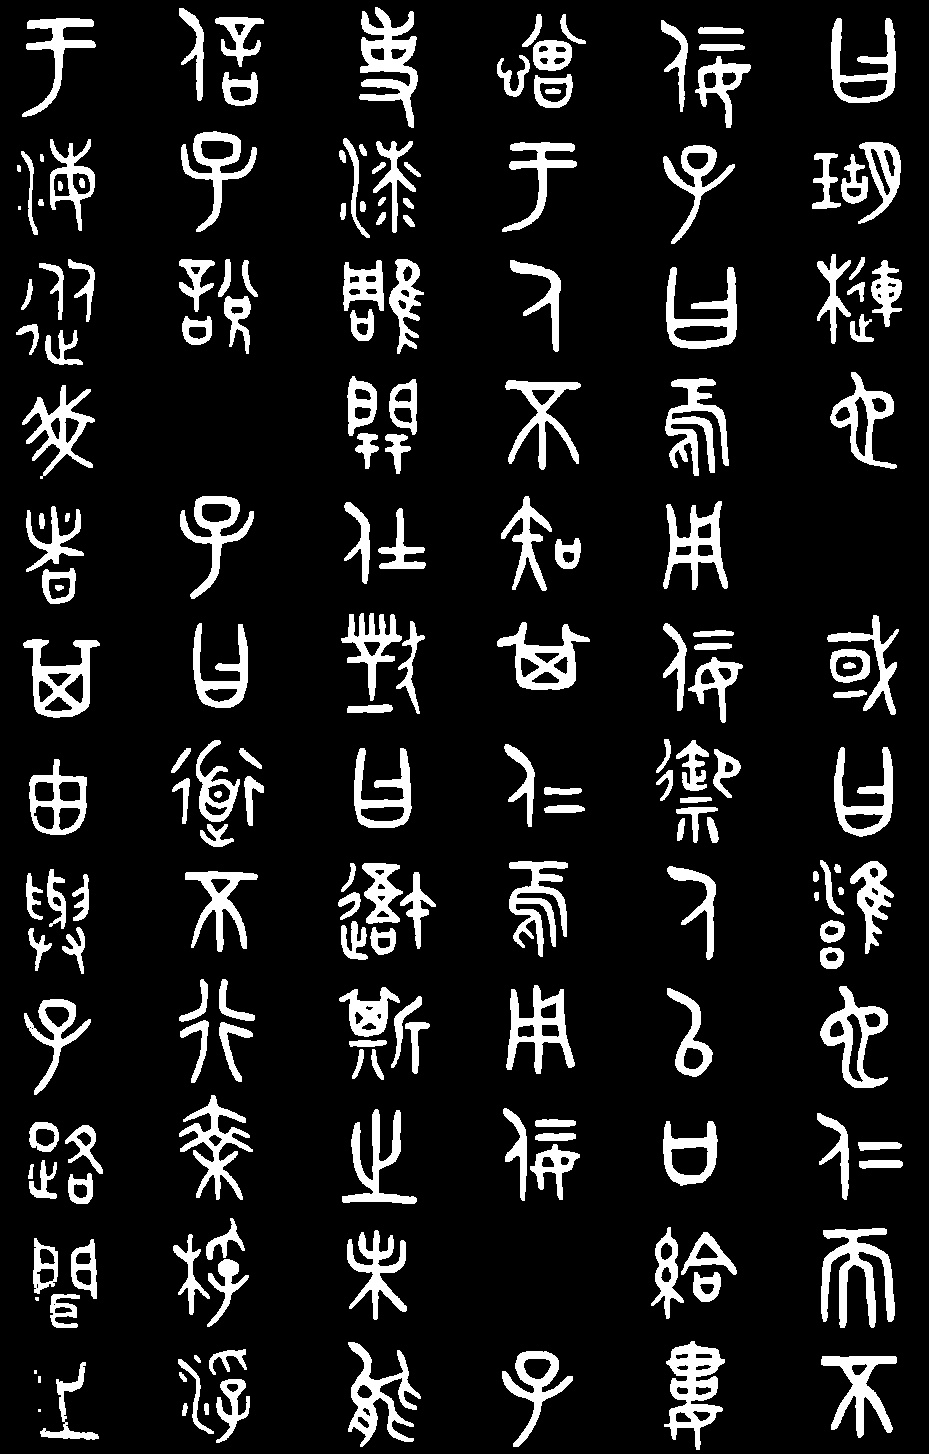 曰瑚槤也　或曰雝也仁而不
佞子曰焉用佞禦人以口給屢
憎于人不知其仁焉用佞　子
使漆雕開仕對曰吾斯之未能
信子說　子曰道不行乘桴浮
于海從我者其由與子路聞之